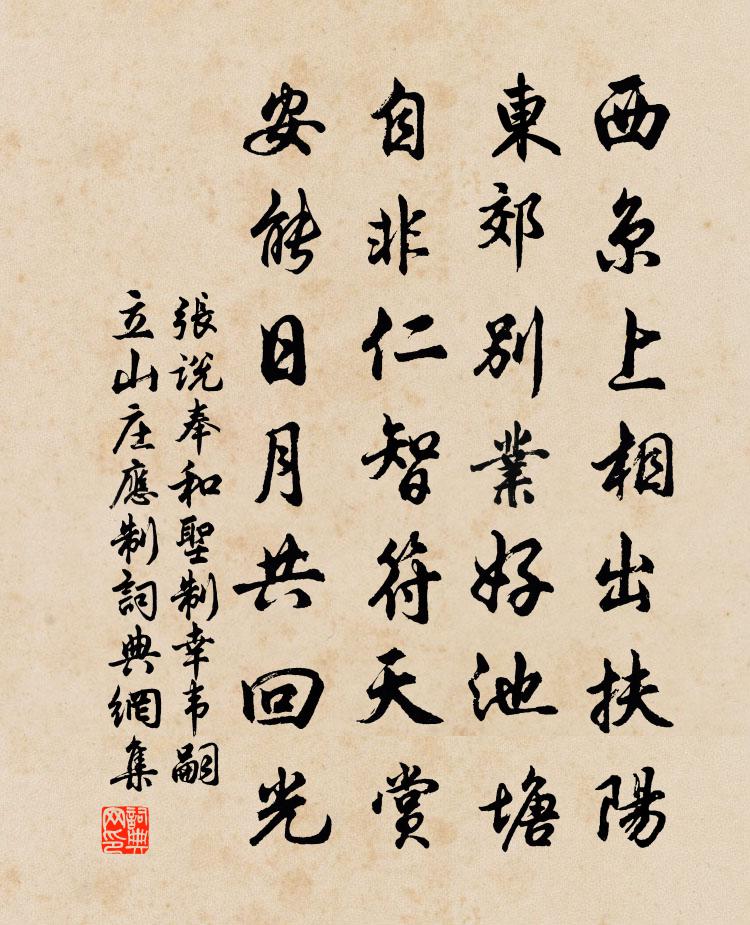 西京上相出扶陽
東郊別業好池塘
自非仁智符天賞
安能日月共回光
張説奉和聖制幸韦嗣
立山庄應制詞典網集
詞典网印